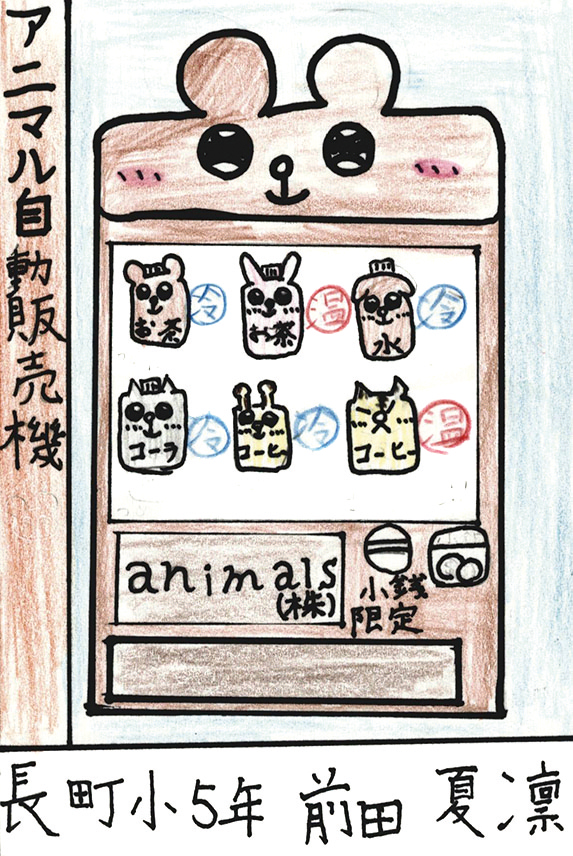 アニマル自動販売機
お茶 冷 お茶 温 水 冷
コーラ 冷 コーヒー 冷 コーヒー 温
animals
(株)
小銭
限定
長町小5年 前田 夏凛